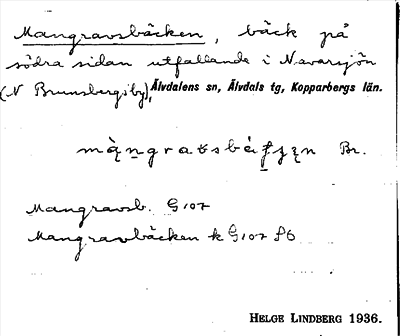 Mangravsbäcken, bäck på
södra sidan utfallande i Navarsjön
(N Brunnsbergs by), Älvdalens sn, Älvdals tg, Kopparbergs län.
Br.
Mangravsb. G107
Mangravbäcken k G107 S6
HELGE LINDBERG 1936.